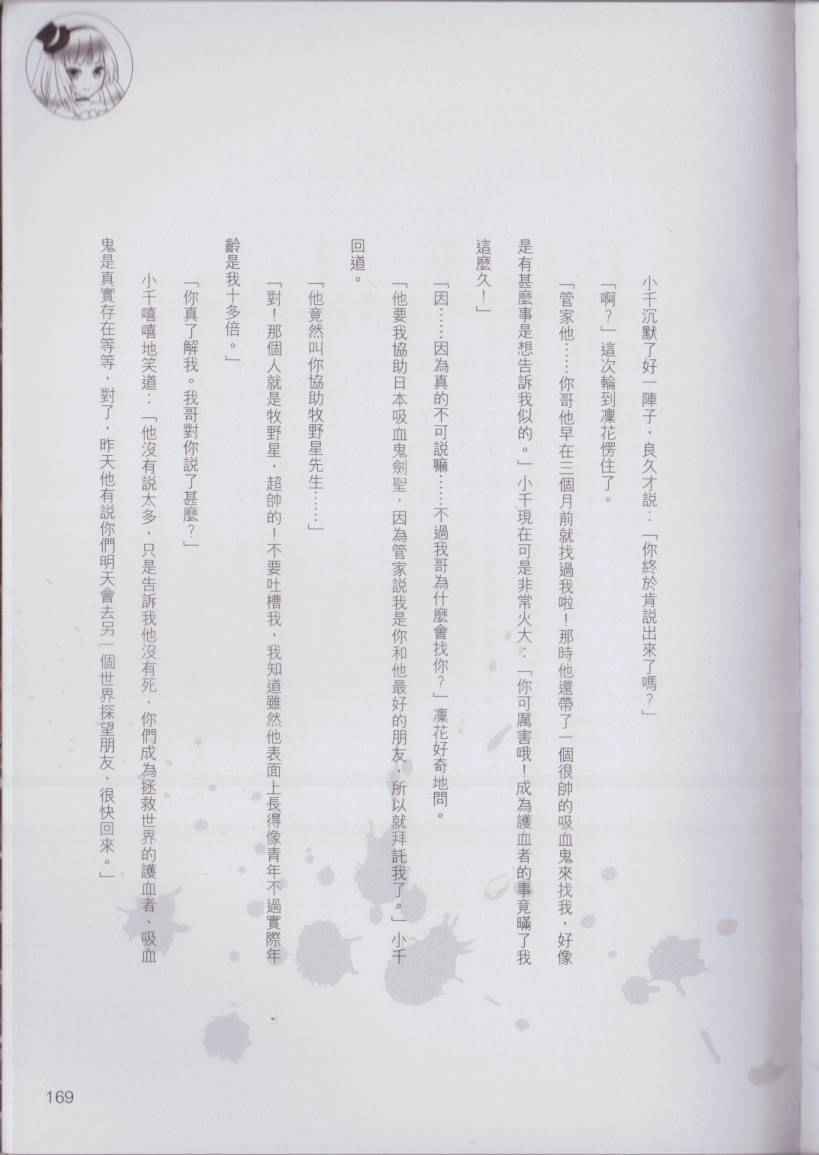 小千沉默了好一陣子，良久才說：「你終於肯說出來了嗎？」
「啊？」這次輪到凜花愣住了。
「管家他……你哥他早在三個月前就找過我啦！那時他還帶了一個很帥的吸血鬼來找我，好像
是有甚麼事是想告訴我似的。」小千現在可是非常火大：「你可厲害哦！成為護血者的事竟瞞了我
這麼久！」
「因……因為真的不可說嘛……不過我哥為什麼會找你？」凜花好奇地問。
「他要我協助日本吸血鬼劍聖，因為管家說我是你和他最好的朋友，所以就拜託我了。」小千
回道。
「他竟然叫你協助牧野星先生……」
「對！那個人就是牧野星，超帥的！不要吐槽我，我知道雖然他表面上長得像青年不過實際年
齡是我十多倍。」
「你真了解我。我哥對你說了甚麼？」
小千嘻嘻地笑道：「他沒有說太多，只是告訴我他沒有死，你們成為拯救世界的護血者、吸血
鬼是真實存在等等，對了，昨天他有說你們明天會去另一個世界探望朋友，很快回來。」
169